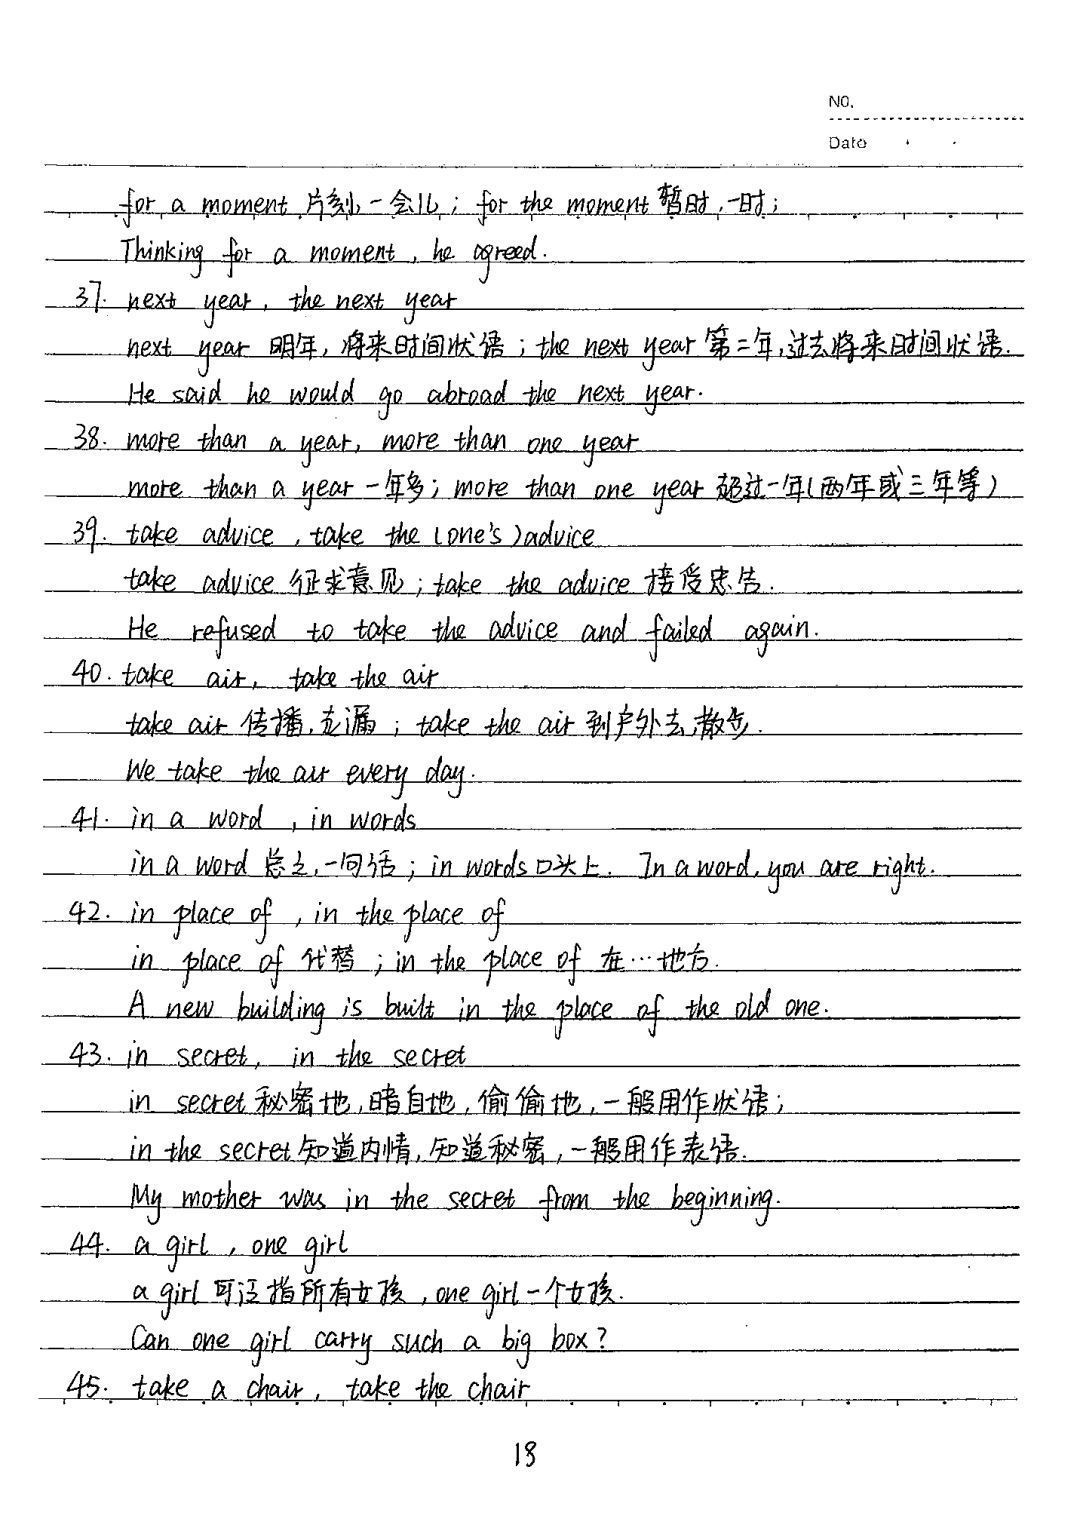 NO.
Date
for a moment 片刻,一会儿; for the moment 暂时,一时;
Thinking for a moment, he agreed.
37. next year, the next year
next year 明年, 将来时间状语; the next year 第二年,过去将来时间状语.
He said he would go abroad the next year.
38. more than a year, more than one year
more than a year 一年多; more than one year 超过一年(两年或三年等)
39. take advice, take the (one's) advice
take advice 征求意见; take the advice 接受忠告.
He refused to take the advice and failed again.
40. take air, take the air
take air 传播,走漏; take the air 到户外去,散步.
We take the air every day.
41. in a word, in words
in a word 总之,一句话; in words 口头上. In a word, you are right.
42. in place of, in the place of
in place of 代替; in the place of 在…地方.
A new building is built in the place of the old one.
43. in secret, in the secret
in secret 秘密地, 暗自地, 偷偷地, 一般用作状语;
in the secret 知道内情, 知道秘密, 一般用作表语.
My mother was in the secret from the beginning.
44. a girl, one girl
a girl 可泛指所有女孩, one girl 一个女孩.
Can one girl carry such a big box?
45. take a chair, take the chair
18